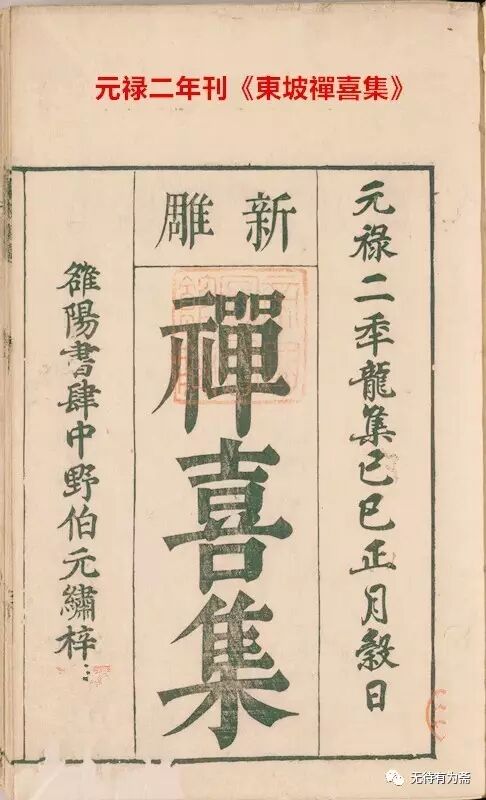 元禄二年刊《東坡禪喜集》
元禄二秊龍集己巳正月穀日
新雕
禪喜集
雒陽書肆中野伯元繡梓
无待有为斋